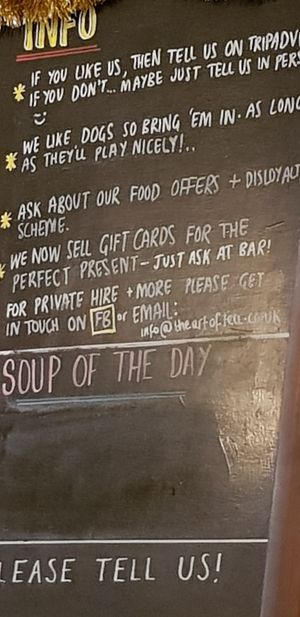 INFO
* IF YOU LIKE US, THEN TELL US ON TRIPADV
IF YOU DON'T... MAYBE JUST TELL US IN PERS
* WE LIKE DOGS SO BRING 'EM IN. AS LONG
AS THEY'LL PLAY NICELY!..
* ASK ABOUT OUR FOOD OFFERS + DISLOYALT
SCHEME.
* WE NOW SELL GIFT CARDS FOR THE
PERFECT PRESENT - JUST ASK AT BAR!
FOR PRIVATE HIRE + MORE PLEASE GET
IN TOUCH ON FB or EMAIL:
info@theartoftea.co.uk
SOUP OF THE DAY
LEASE TELL US!